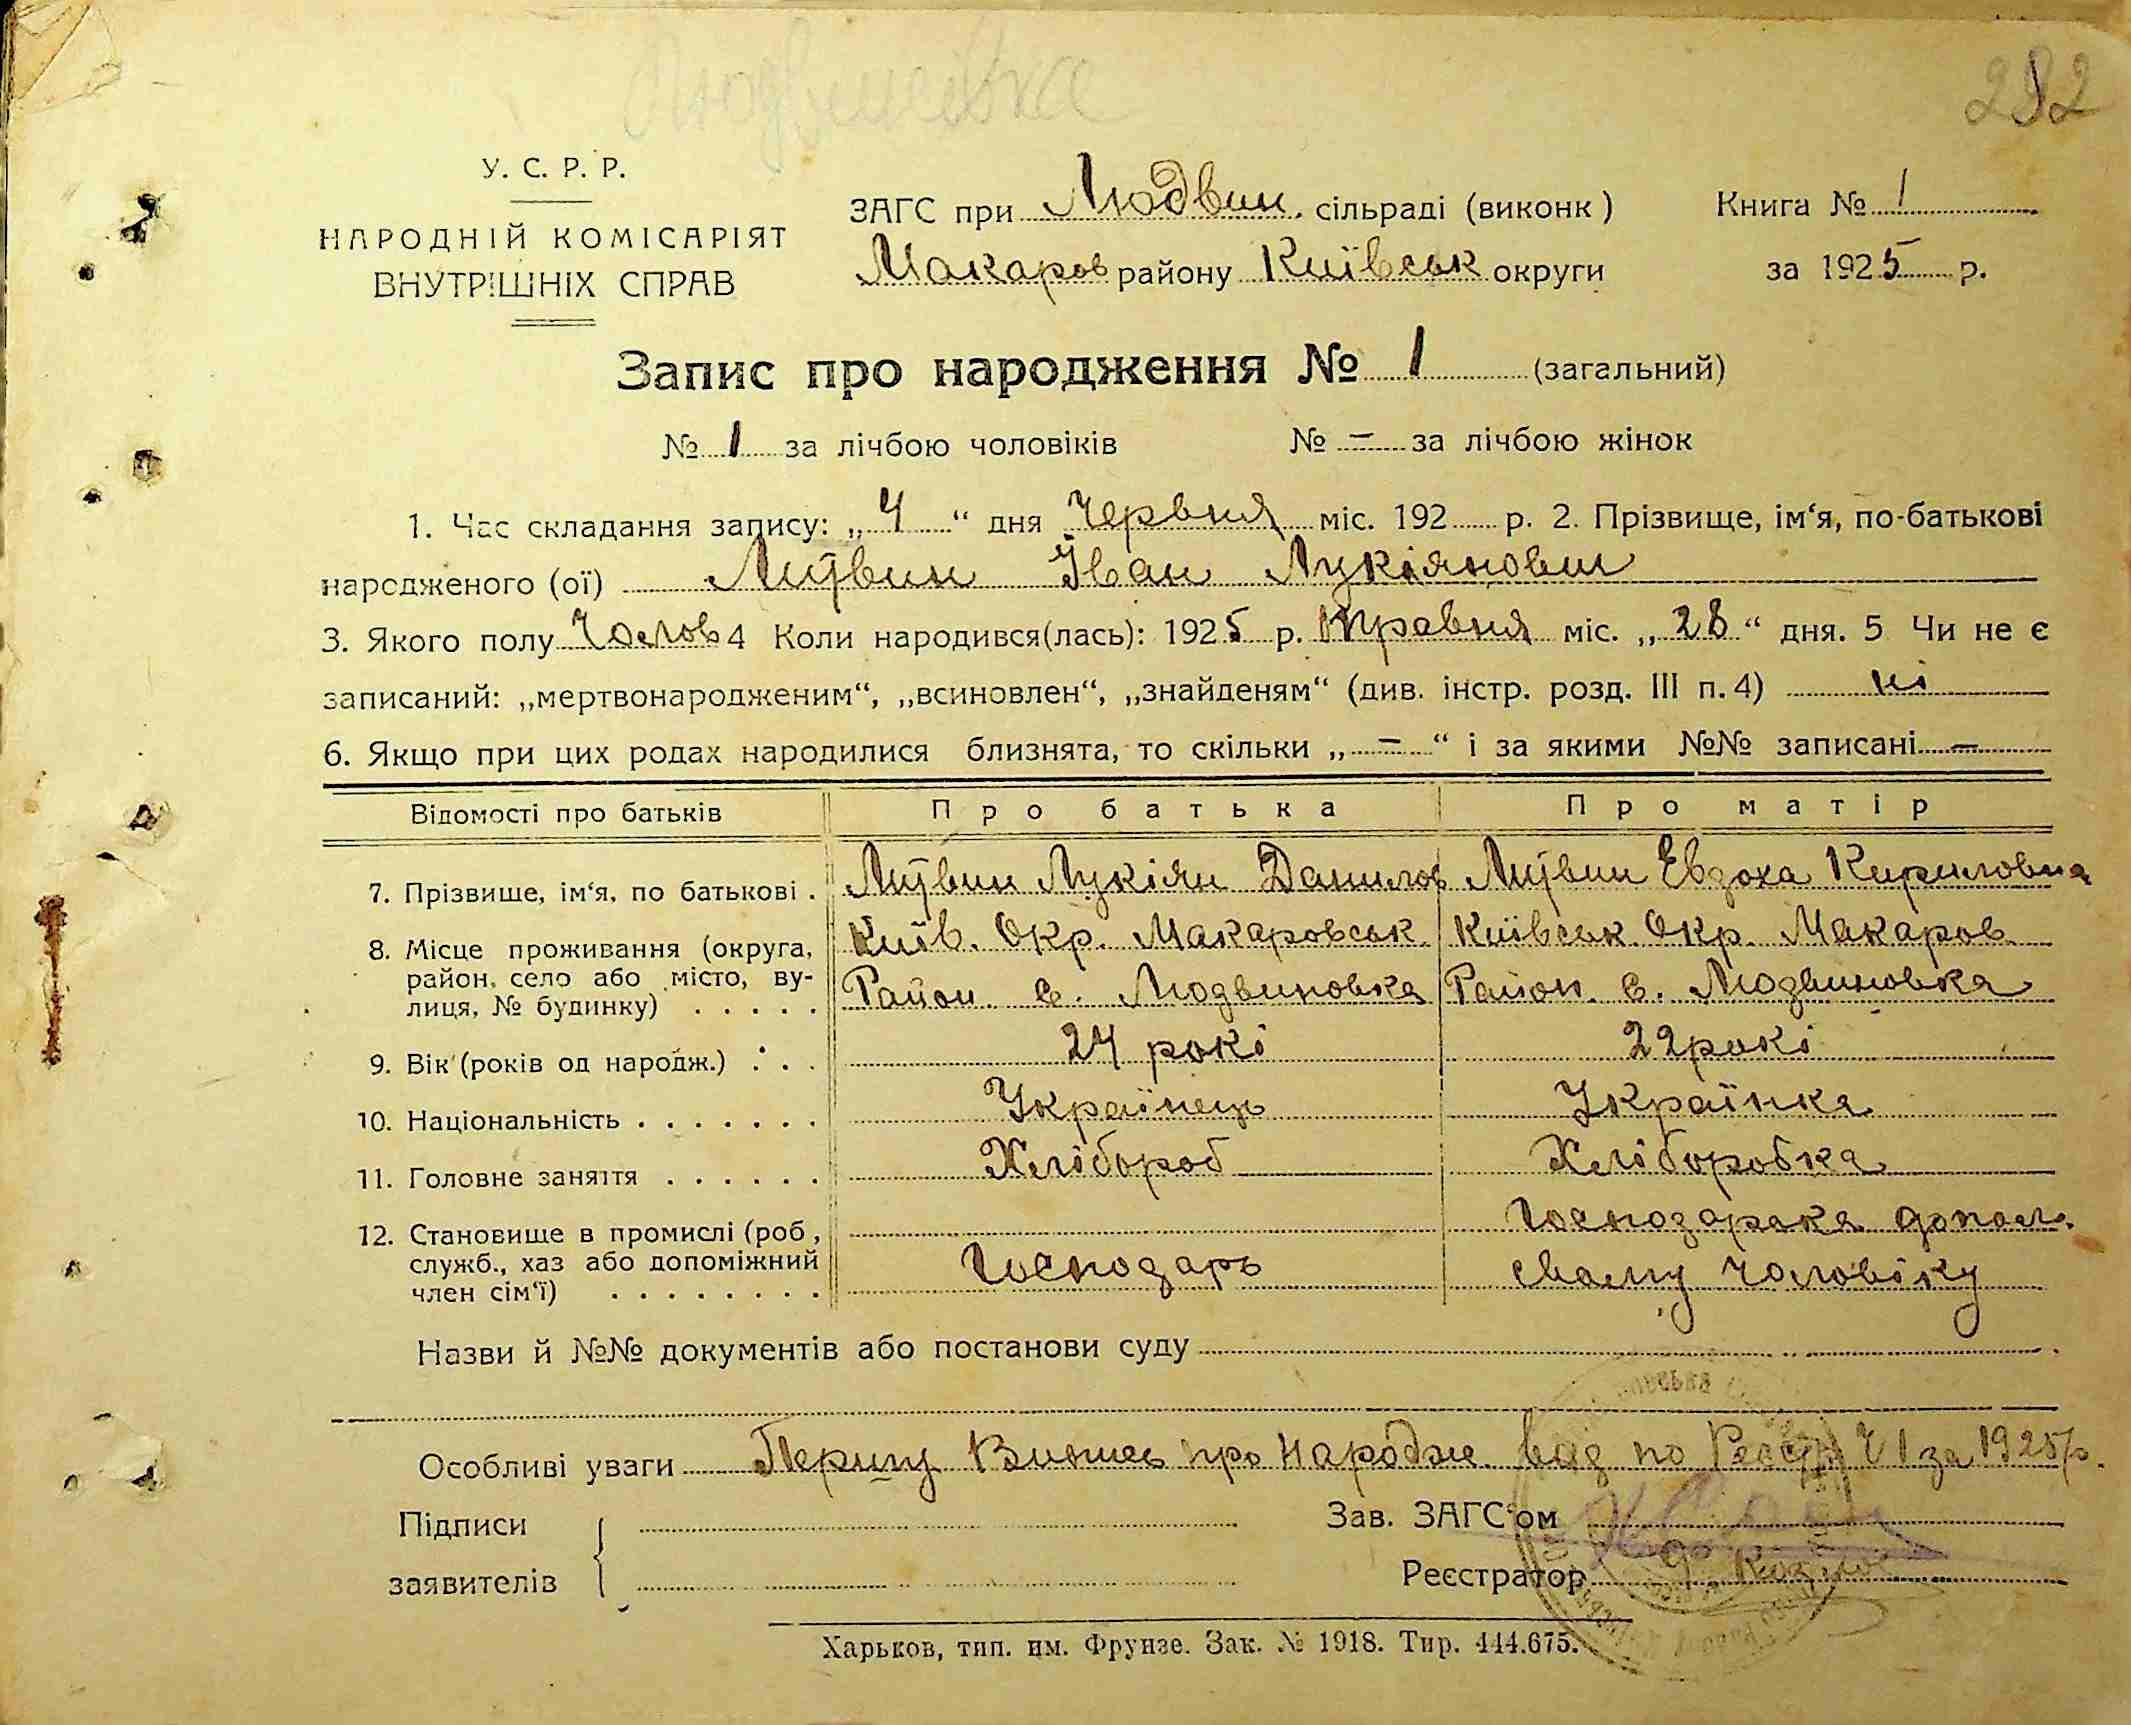 Людвинівка
282
У. С. Р. Р.
НАРОДНІЙ КОМІСАРІЯТ
ВНУТРІШНІХ СПРАВ
ЗАГС при Людвин. сільраді (виконк)
Макаров району Київськ округи
Книга № 1
за 1925 р.
Запис про народження № 1 (загальний)
№ 1 за лічбою чоловіків № – за лічбою жінок
1. Час складання запису: „4“ дня Червня міс. 192 р. 2. Прізвище, ім‘я, по-батькові
народженого (ої) Литвин Іван Лукіянович
3. Якого полу Чолов 4 Коли народився(лась): 1925 р. Травня міс. „28“ дня. 5 Чи не є
записаний: „мертвонародженим“, „всиновлен“, „знайденям“ (див. інстр. розд. III п. 4) ні
6. Якщо при цих родах народилися близнята, то скільки „–“ і за якими №№ записані –
Відомості про батьків Про батька Про матір
7. Прізвище, ім‘я, по батькові . Литвин Лукіян Данилов Литвин Евдоха Кириловна
8. Місце проживання (округа, Київ. Окр. Макаровськ Київськ Окр. Макаров
район, село або місто, ву-
лиця, № будинку) . . . . . Район с. Людвиновка Район. с. Людвиновка
9. Вік (років од народж.) . . . 24 рокі 22 рокі
10. Національність . . . . . . . Українець Українка
11. Головне заняття . . . . . . Хлібороб Хліборобка
12. Становище в промислі (роб, Господарака допом.
служб., хаз або допоміжний Господарь свому чоловіку
член сім‘ї) . . . . . . . .
Назви й №№ документів або постанови суду
Особливі уваги Першу Випись про Народже. вид по Реєстр № 1 за 1925 р.
Підписи
заявителів
Зав. ЗАГС‘ом
Реєстратор
Харьков, тип. им. Фрунзе. Зак. № 1918. Тир. 444.675.